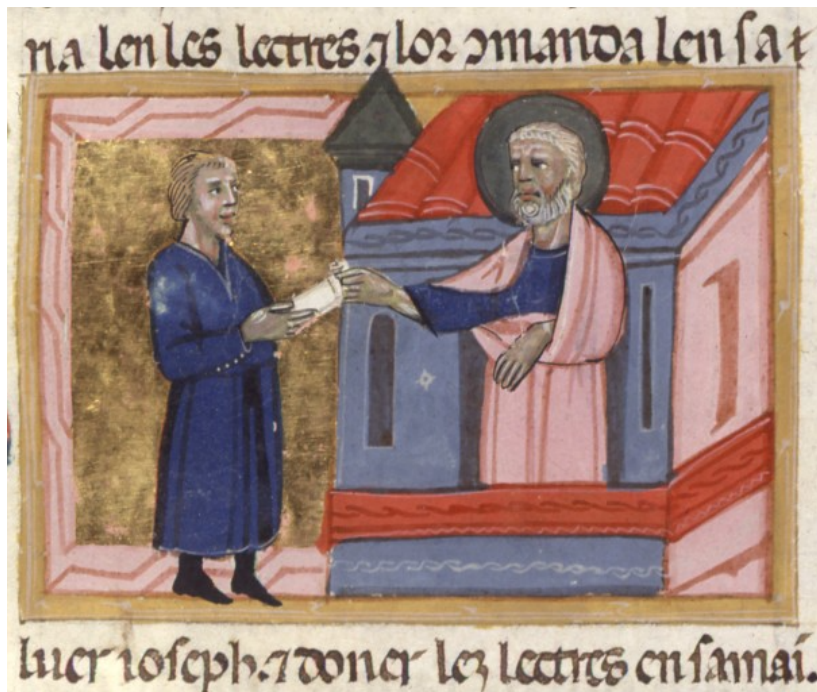 ria len les lectres ⁊ lor ꝯmanda len sa⁊
luer ioseph. ⁊ doner lez lectres en samai.